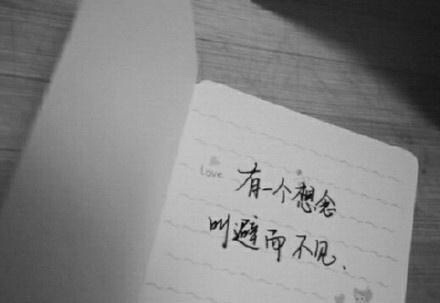 Love
有一个想念
叫避而不见、